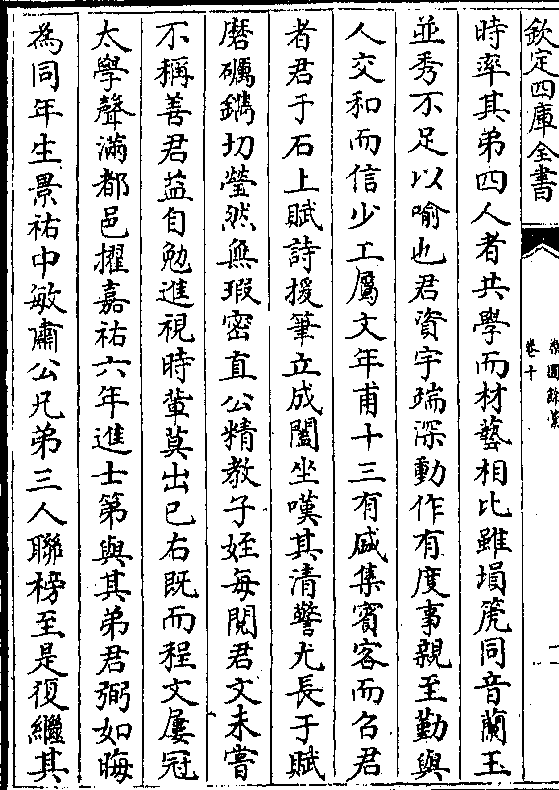 欽定四庫全書
卷十
時率其弟四人者共學而材藝相比雖塤箎同音蘭玉
並秀不足以喻也君資宇端深動作有度事親至勤與
人交和而信少工屬文年甫十三有戚集賓客而召君
者君于石上賦詩援筆立成闔坐嘆其清警尤長于賦
磨礪鐫切瑩然無瑕密直公精教子姪每閱君文未嘗
不稱善君益自勉進視時輩莫出己右既而程文屢冠
太學聲滿都邑擢嘉祐六年進士第與其弟君弼如晦
為同年生景祐中敏肅公兄弟三人聯榜至是復繼其